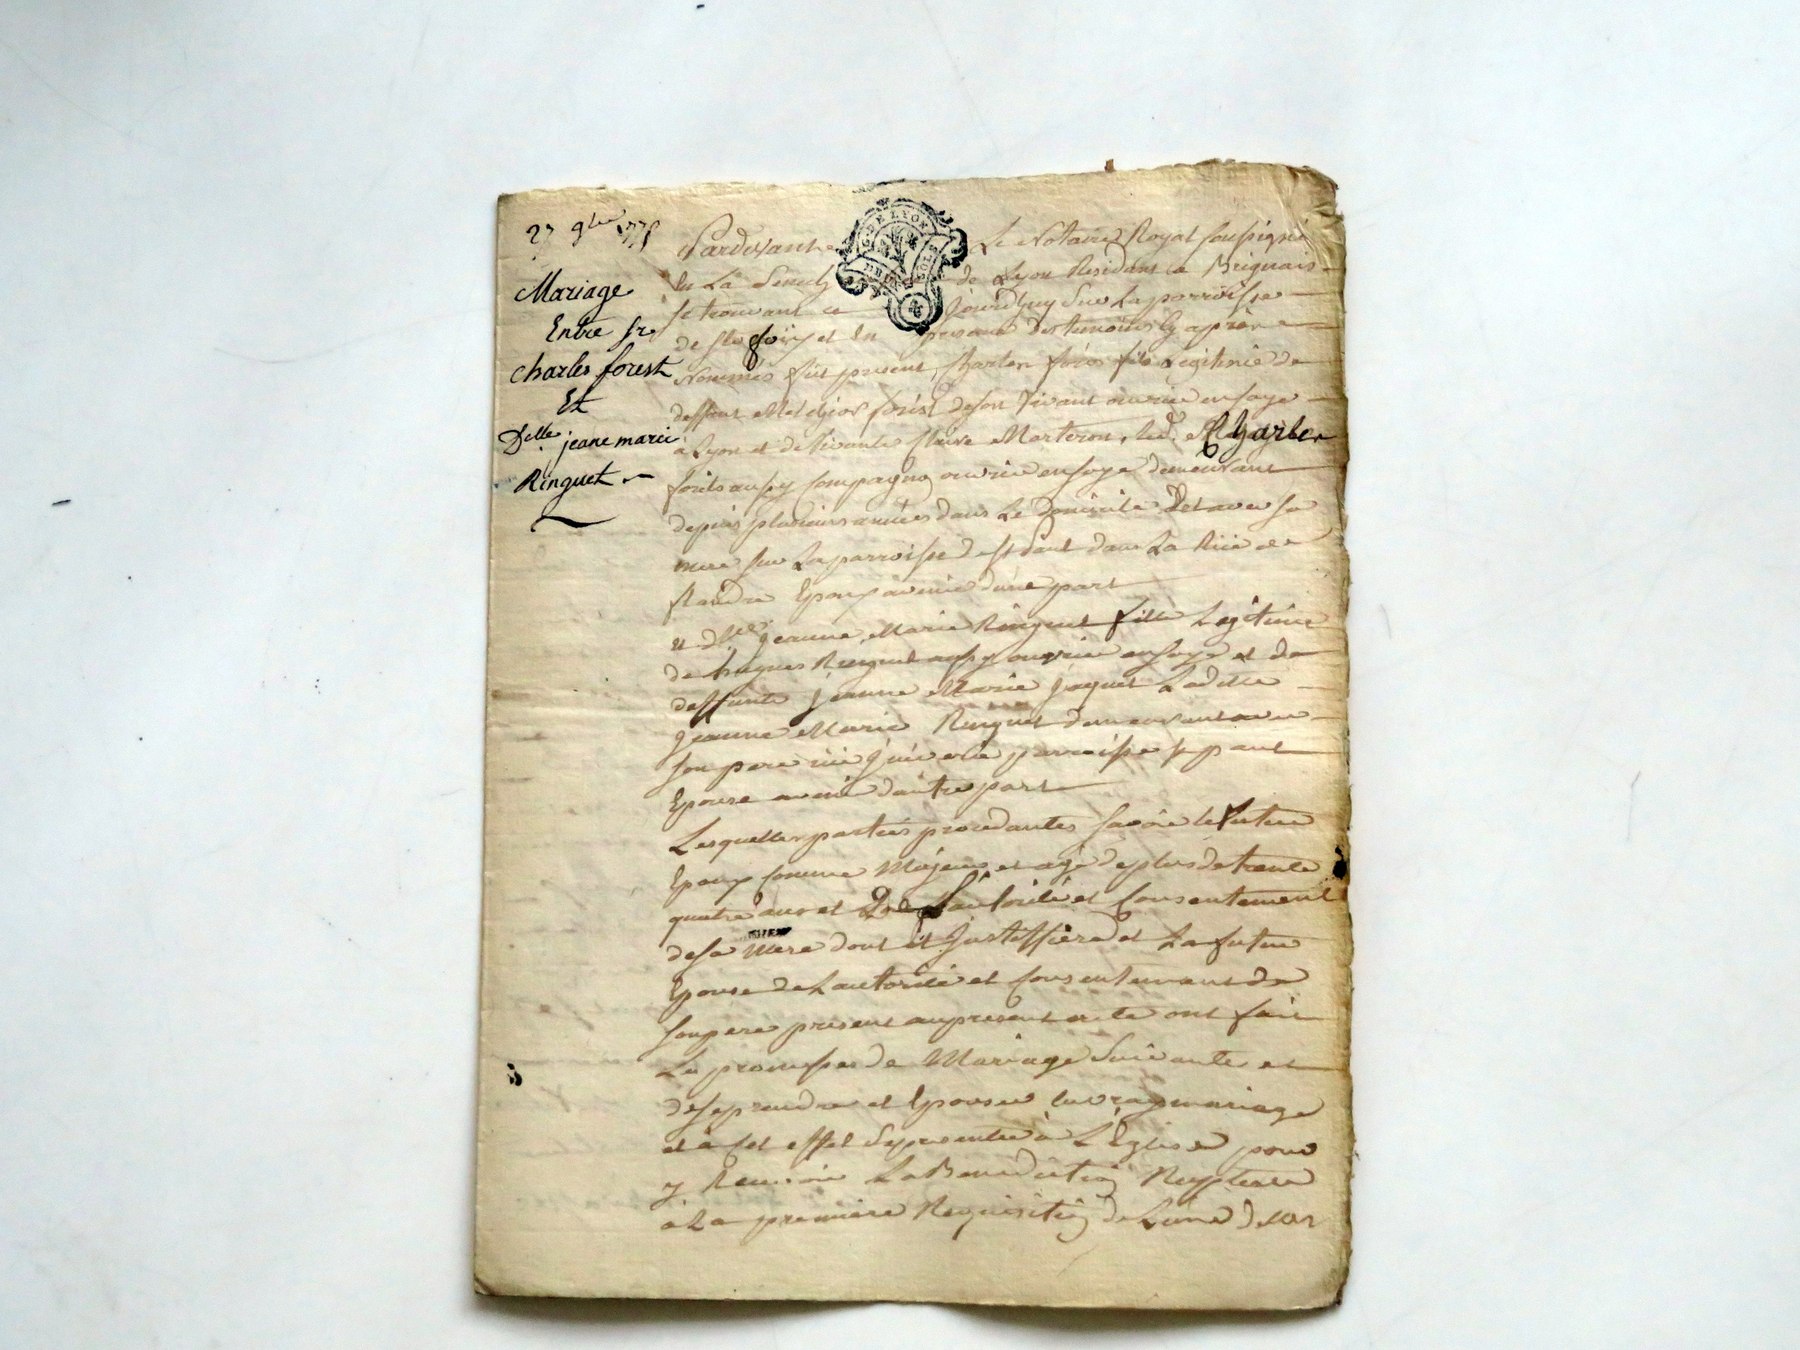 27 9bre 1775
Mariage
Entre sr
charles forest
Et
Delle jeane marie
Ringuet
G. DE LYON
DEUX SOLS
Pardevant Le Notaire Royal soussigné
En La Senech de Lyon Residant a Brignais
se trouvant ce jourdhuy sur La parroisse
de ste foÿ et En presence des temoins Cy après
Nommés fût present, Charles forest fils Legitime de
deffunt Melchior forest de son Vivant ouvrier en soye
à Lyon et de Vivante Claire Marteron, led. sr Charles
forest aussy Compagnon ouvrier en soye demeurant
depuis plusieurs années dans Le domicile Et avec sa
mere sur La parroisse de st paul dans La Rüe de
flandre Epoux avenir d'une part
et dlle Jeanne Marie Ringuet fille Legitime
de hugues Ringuet aussy ouvrier en soye et de
deffunte Jeanne Marie Jaquet Ladite
Jeanne Marie Ringuet demeurant avec
son pere rüe Juiverie parroisse st paul
Epouse avenir d'autre part
Lesquelles parties procedantes savoir le futur
Epoux Comme Majeur et agé de plus de trente
quatre ans et De L'autorité et Consentement
de sa mere dont il justiffiera et La future
Epouse de L'autorité et Consentement de
son pere present au present acte ont fait
Les promesses de Mariage Suivantes et
de se prendre et Epouser En vray mariage
et à Cet effet se presenter à L'Eglise pour
y Recevoir La Benediction Nuptiale
à La premiere Requisition de L'une des